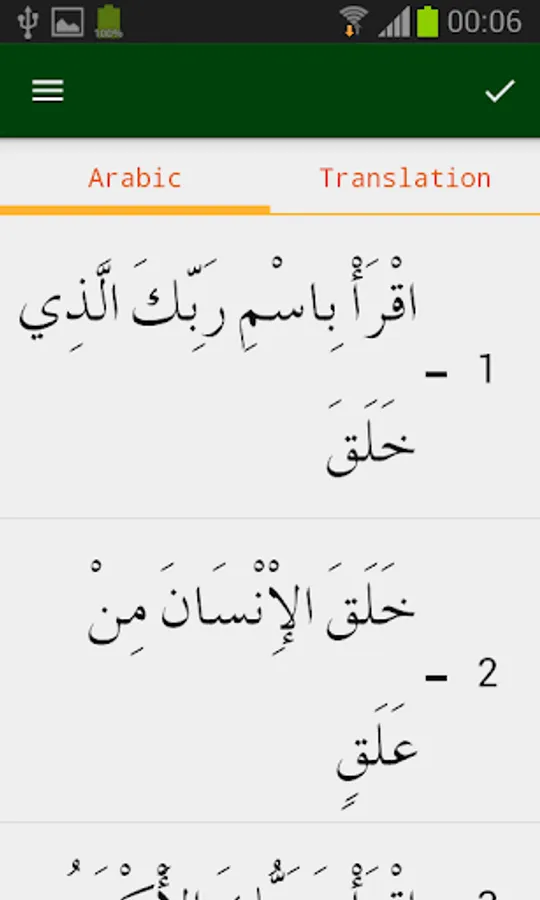 100%
00:06
Arabic
Translation
اقْرَأْ بِاسْمِ رَبِّكَ الَّذِي
1 -
خَلَقَ
خَلَقَ الْإِنْسَانَ مِنْ
2 -
عَلَقٍ